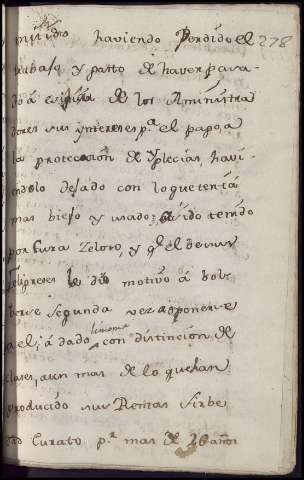 haviendo Perdido el 278
trabaso, y gasto de haver pasa-
do á de los Aministra
dores sus yntereses p.ª el pago, a
la proteccion de yglecias, havi-
endolo dejado con lo que tenia
mas biejo y usado; á sido tenido
por Cura Zeloso, y q.e el de sus
feligreses le dio motivo á bol-
berse segunda vez a ponerse
a el; á dado limosna con distincion de
clases, aun mas de lo que han
producido sus Rentas Sirbe
Curato p.ª mas de 20 años